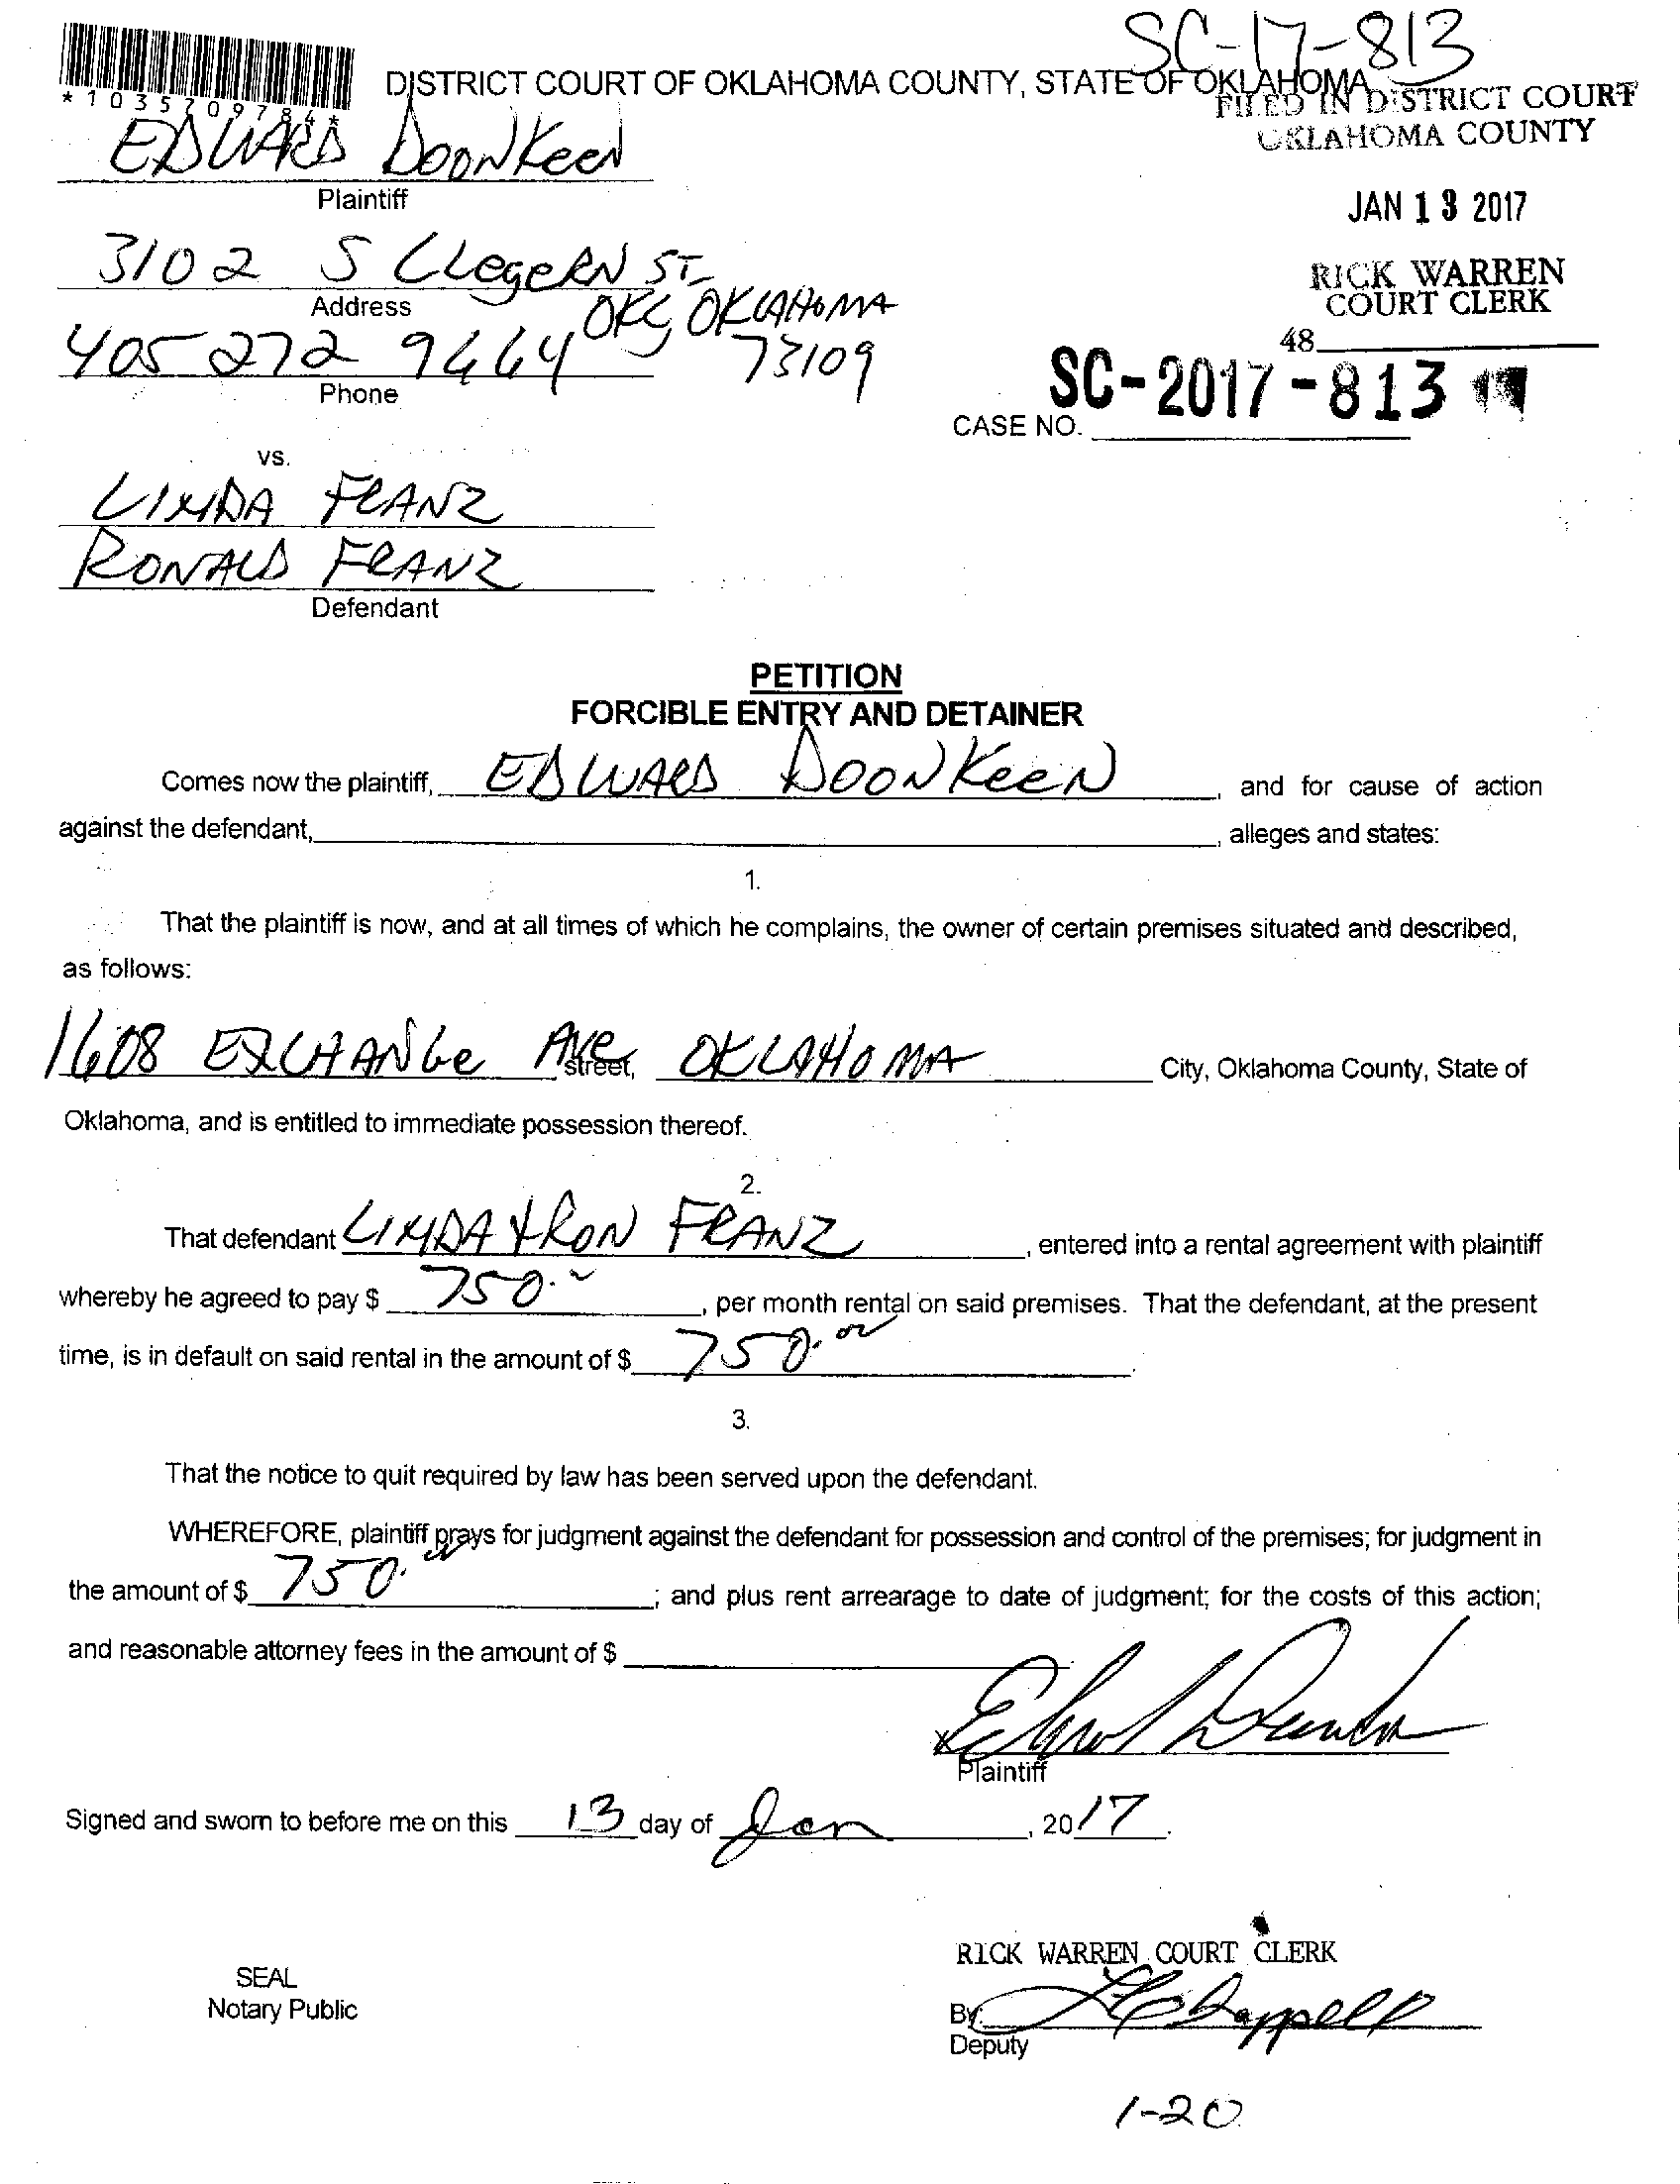 SC-17-813
DISTRICT COURT OF OKLAHOMA COUNTY, STATE OF OKLAHOMA
*1035209784*
FILED IN DISTRICT COURT
OKLAHOMA COUNTY
EDWARD DOONKEEN
Plaintiff
JAN 13 2017
3102 S CLEGERN ST
Address
OKC, OKLAHOMA
73109
RICK WARREN
COURT CLERK
405 272 9664
Phone
48
SC-2017-813
CASE NO.
vs.
LINDA FRANZ
RONALD FRANZ
Defendant
PETITION
FORCIBLE ENTRY AND DETAINER
Comes now the plaintiff, EDWARD DOONKEEN, and for cause of action
against the defendant, , alleges and states:
1.
That the plaintiff is now, and at all times of which he complains, the owner of certain premises situated and described,
as follows:
1608 EXCHANGE AVE street, OKLAHOMA City, Oklahoma County, State of
Oklahoma, and is entitled to immediate possession thereof.
2.
That defendant LINDA & RON FRANZ, entered into a rental agreement with plaintiff
whereby he agreed to pay $ 750.00, per month rental on said premises. That the defendant, at the present
time, is in default on said rental in the amount of $ 750.00.
3.
That the notice to quit required by law has been served upon the defendant.
WHEREFORE, plaintiff prays for judgment against the defendant for possession and control of the premises; for judgment in
the amount of $ 750.00; and plus rent arrearage to date of judgment; for the costs of this action;
and reasonable attorney fees in the amount of $
x Edward Doonkeen
Plaintiff
Signed and sworn to before me on this 13 day of Jan, 2017.
RICK WARREN COURT CLERK
SEAL
Notary Public
By:
Deputy
1-20